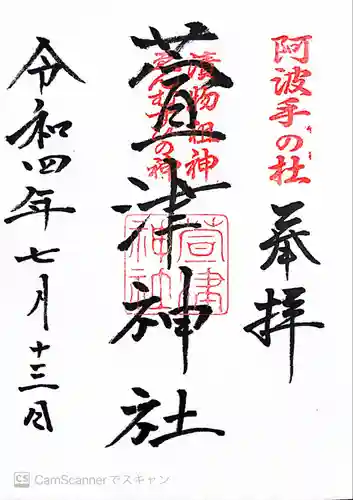 阿波手の杜
奉拝
漬物祖神
萱津神社
萱津神社
令和四年七月十三日
CS CamScannerでスキャン